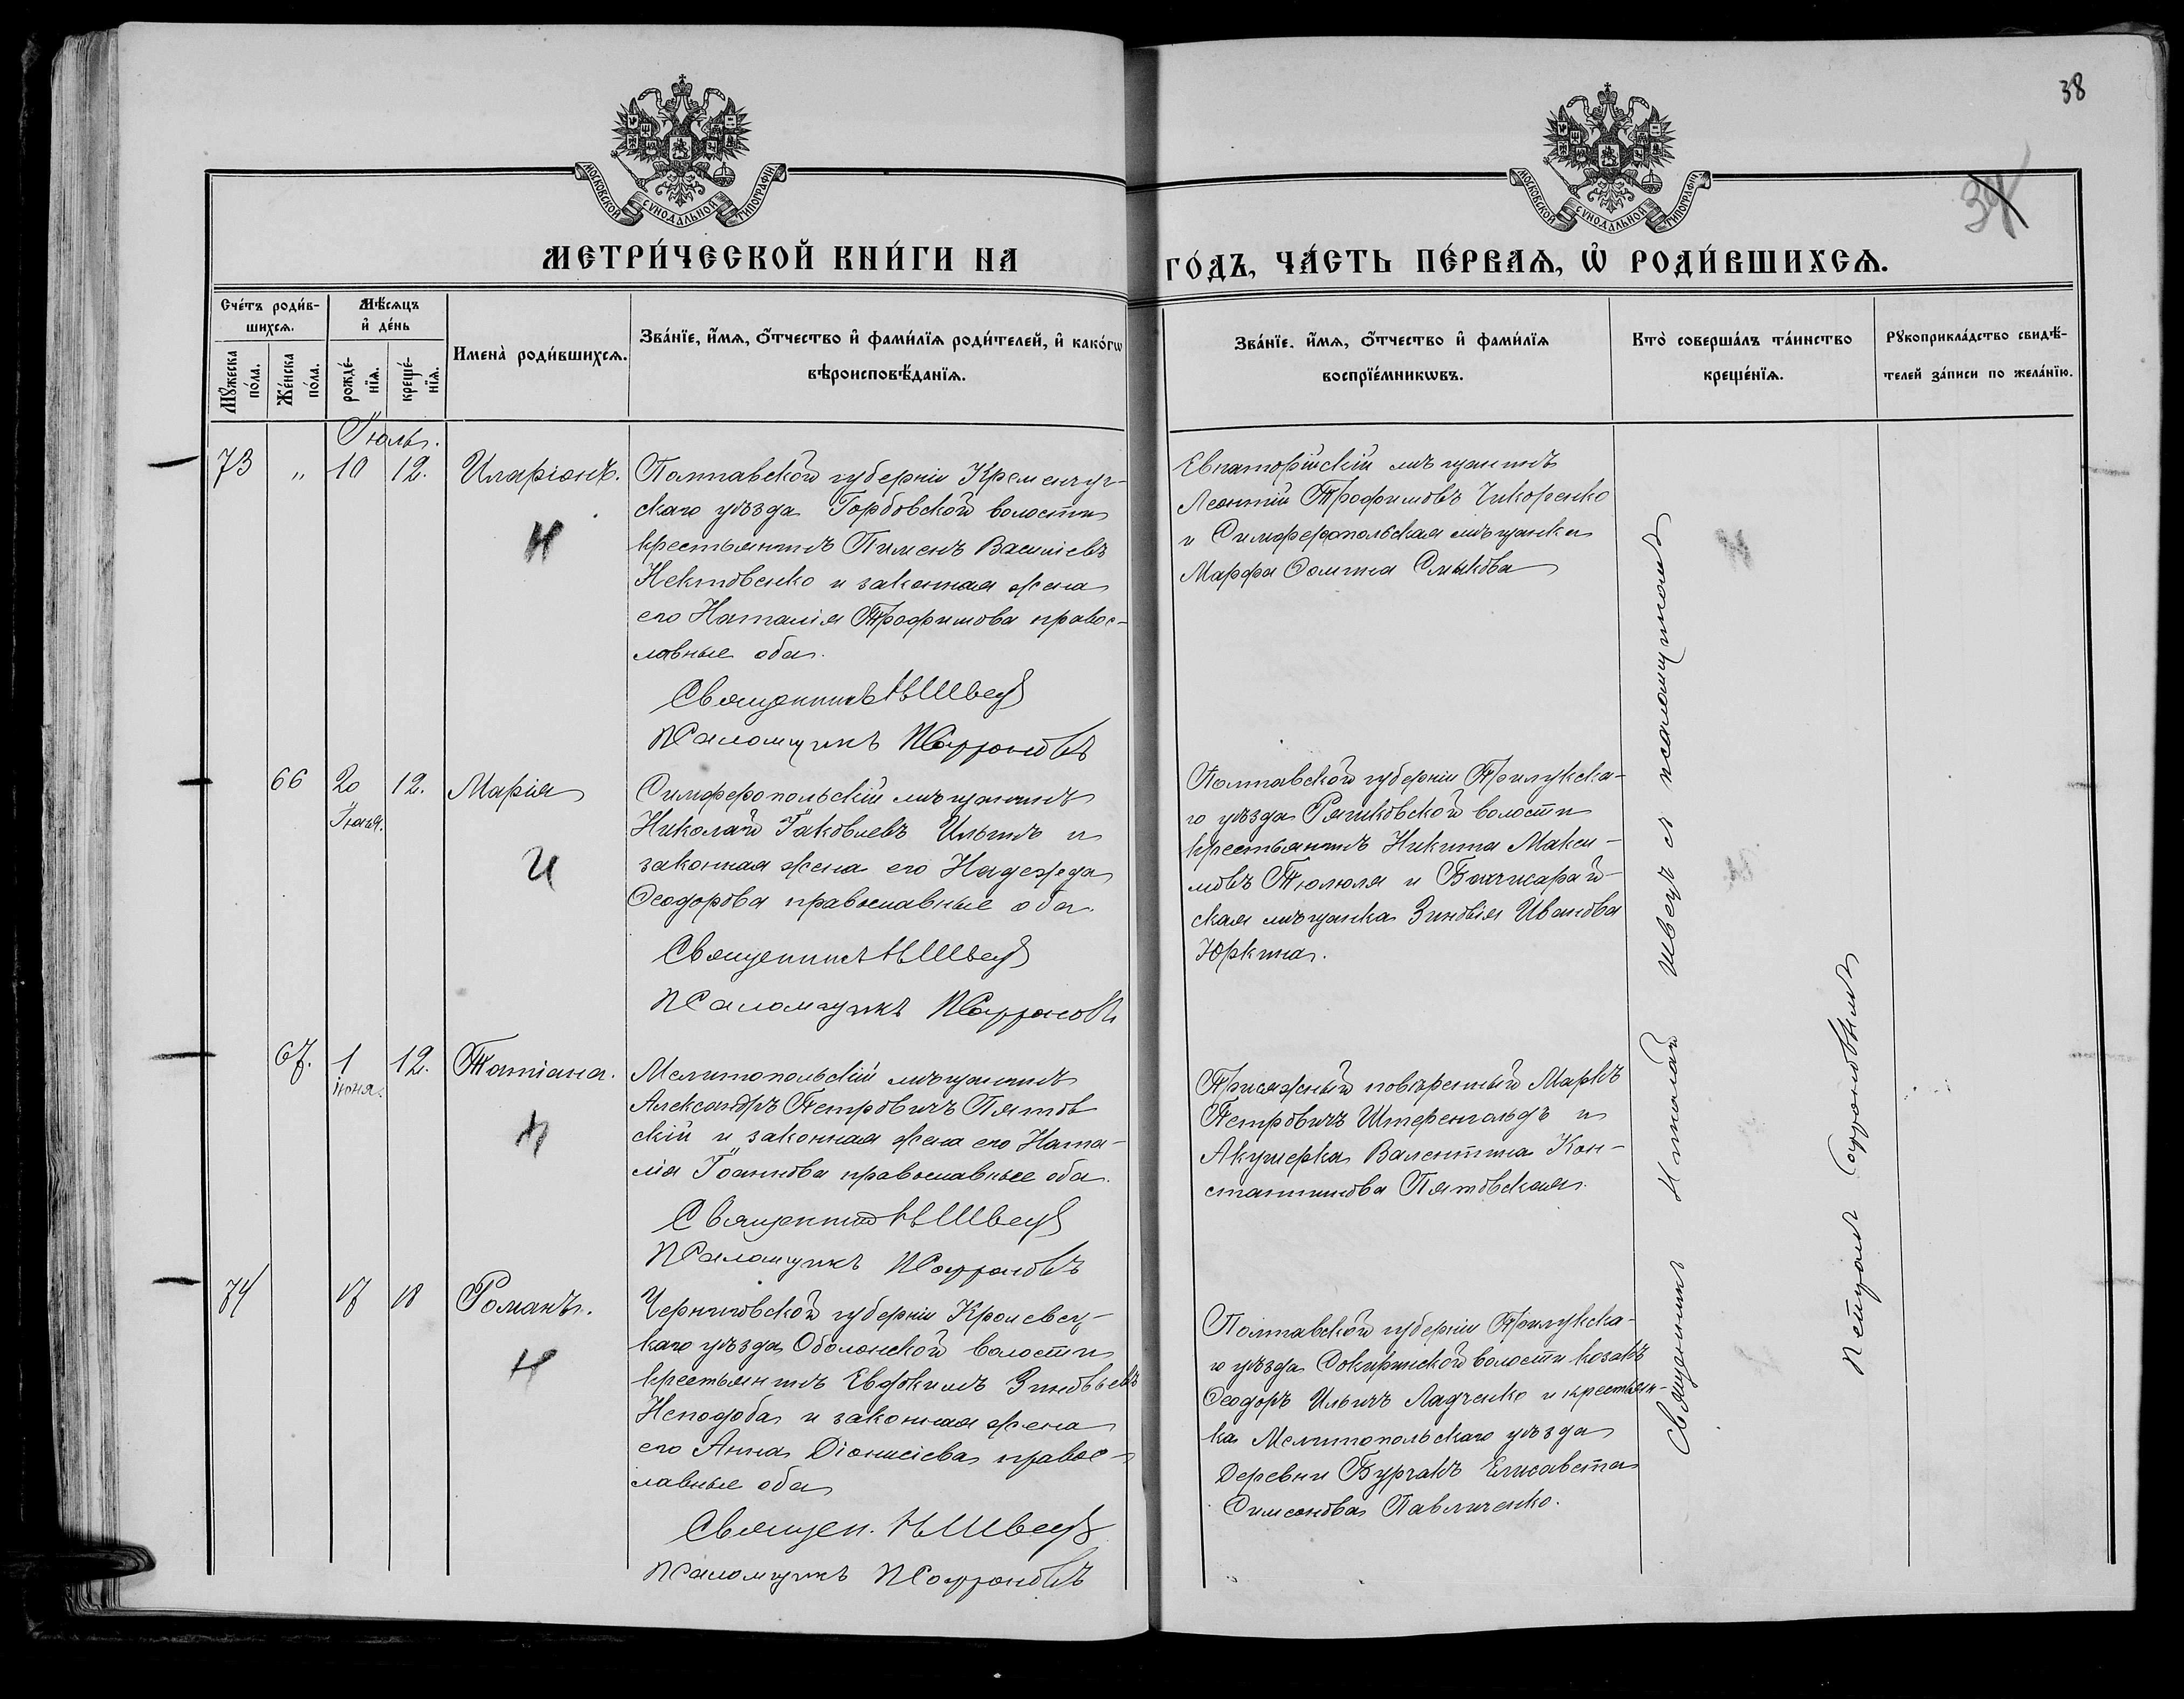 38
34
МОСКОВСКОЙ СѴНОДАЛЬНОЙ ТИПОГРАФІИ
МОСКОВСКОЙ СѴНОДАЛЬНОЙ ТИПОГРАФІИ
МЕТРИ́ЧЕСКОЙ КНИ́ГИ НА
ГО́ДЪ, ЧА́СТЬ ПЕ́РВАѦ, Ѽ РОДИ́ВШИХСѦ.
Сче́тъ роди́в-
шихсѧ.
Мꙋ́жеска по́ла.
Же́нска по́ла.
Мѣ́сѧцъ
и҆ де́нь
рожде́-
нїѧ.
креще́-
нїѧ.
Имена̀ роди́вшихсѧ.
Зва́нїе, и҆́мѧ, ѻ҆́тчество и҆ фами́лїѧ роди́телей, и҆ како́гѡ
вѣроисповѣ́данїѧ.
Зва́нїе. и҆́мѧ, ѻ҆́тчество и҆ фами́лїѧ
воспрїе́мникѡвъ.
Кто̀ соверша́лъ та́инство
креще́нїѧ.
Рꙋкоприкла́дство свидѣ́-
телей за́писи по жела́нїю.
Іюль.
73 " 10 12. Иларіонъ.
Полтавской губерніи Кременчуг-
скаго уѣзда Горбовской волости
крестьянинъ Пименъ Василіевъ
и законная жена
его Наталія Трофимова правос-
лавные оба.
Священникъ Н Швецъ
Псаломщикъ П Софроновъ
Евпаторійскій мѣщанинъ
Леонтій Трофимовъ Чикоренко
и Симферопольская мѣщанка
Марфа Ѳомина
66 20 Іюня. 12. Марія
Симферопольскій мѣщанинъ
Николай Іаковлевъ Ильинъ и
законная жена его Надежда
Ѳеодорова православные оба.
Священникъ Н Швецъ
Псаломщикъ П Софроновъ
Полтавской губерніи Прилукска-
го уѣзда Ряшковской волости
крестьянинъ Никита Макси-
мовъ Тюлюля и Бахчисарай-
ская мѣщанка Зиновія Иванова
Юркина.
67. 1 іюня. 12. Татіана.
Мелитопольскій мѣщанинъ
Александръ Петровичъ Пятов
скій и законная жена его Ната-
лія Іоаннова православные оба.
Священникъ Н Швецъ
Псаломщикъ П Софроновъ
Присяжный повѣренный Маркъ
Петровичъ Штеренгольдъ и
Акушерка Валентина Кон-
стантинова Пятовская.
74 17 18 Романъ.
Черниговской губерніи Кролевец-
каго уѣзда Оболонской волости
крестьянинъ Евфимъ Зиновьевъ
Неподоба и законная жена
его Анна Діонисіева правос-
лавные оба
Священ. Н Швецъ
Псаломщикъ П Софроновъ
Полтавской губерніи Прилукска-
го уѣзда Сокиринской волости козакъ
Ѳеодоръ Ильичъ Ладченко и крестьян-
ка Мелитопольскаго уѣзда
Деревни Бурчакъ Елисавета
Симеонова Павличенко.
Священникъ Николай Швецъ съ псаломщикомъ
Петромъ Софроновымъ